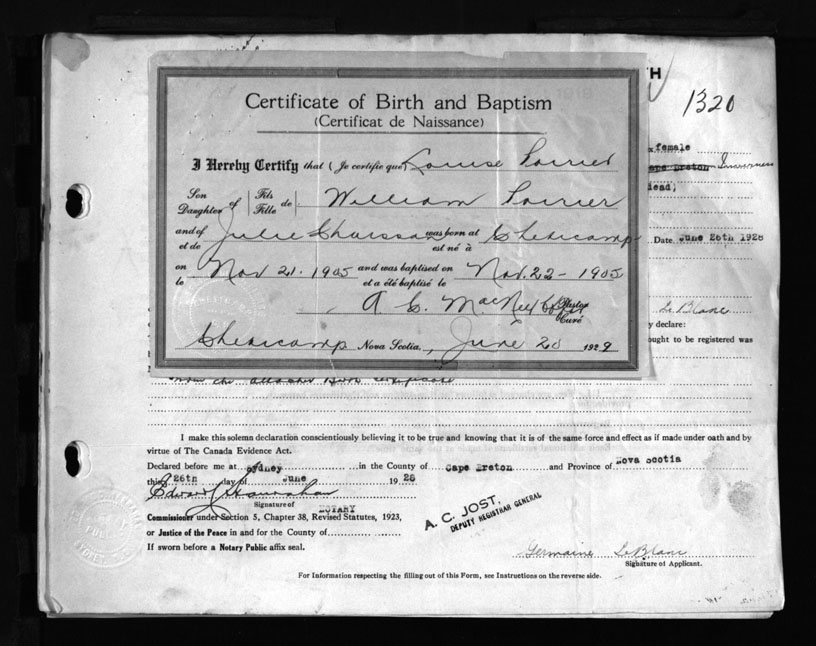 H
1320
Certificate of Birth and Baptism
(Certificat de Naissance)
I Hereby Certify that (Je certifie que) Louise Poirier
Son Daughter of Fils Fille de William Poirier
and of et de Julie Chaisson was born at est né à Cheticamp
on le Nov 21 - 1905 and was baptised on et a été baptisé le Nov. 22 - 1905
A. G. MacNeil Pastor Curé
Cheticamp Nova Scotia, June 20 1929
female
Cape Breton Inverness
Date June 26th 1928
Le Blanc
y declare:
ought to be registered was
from the attached Birth certificate
I make this solemn declaration conscientiously believing it to be true and knowing that it is of the same force and effect as if made under oath and by
virtue of The Canada Evidence Act.
Declared before me at Sydney in the County of Cape Breton and Province of Nova Scotia
this 26th day of June 1928
Signature of
NOTARY
Commissioner under Section 5, Chapter 38, Revised Statutes, 1923,
or Justice of the Peace in and for the County of
If sworn before a Notary Public affix seal.
A. C. JOST,
DEPUTY REGISTRAR GENERAL
Germaine LeBlanc
Signature of Applicant.
For Information respecting the filling out of this Form, see Instructions on the reverse side.